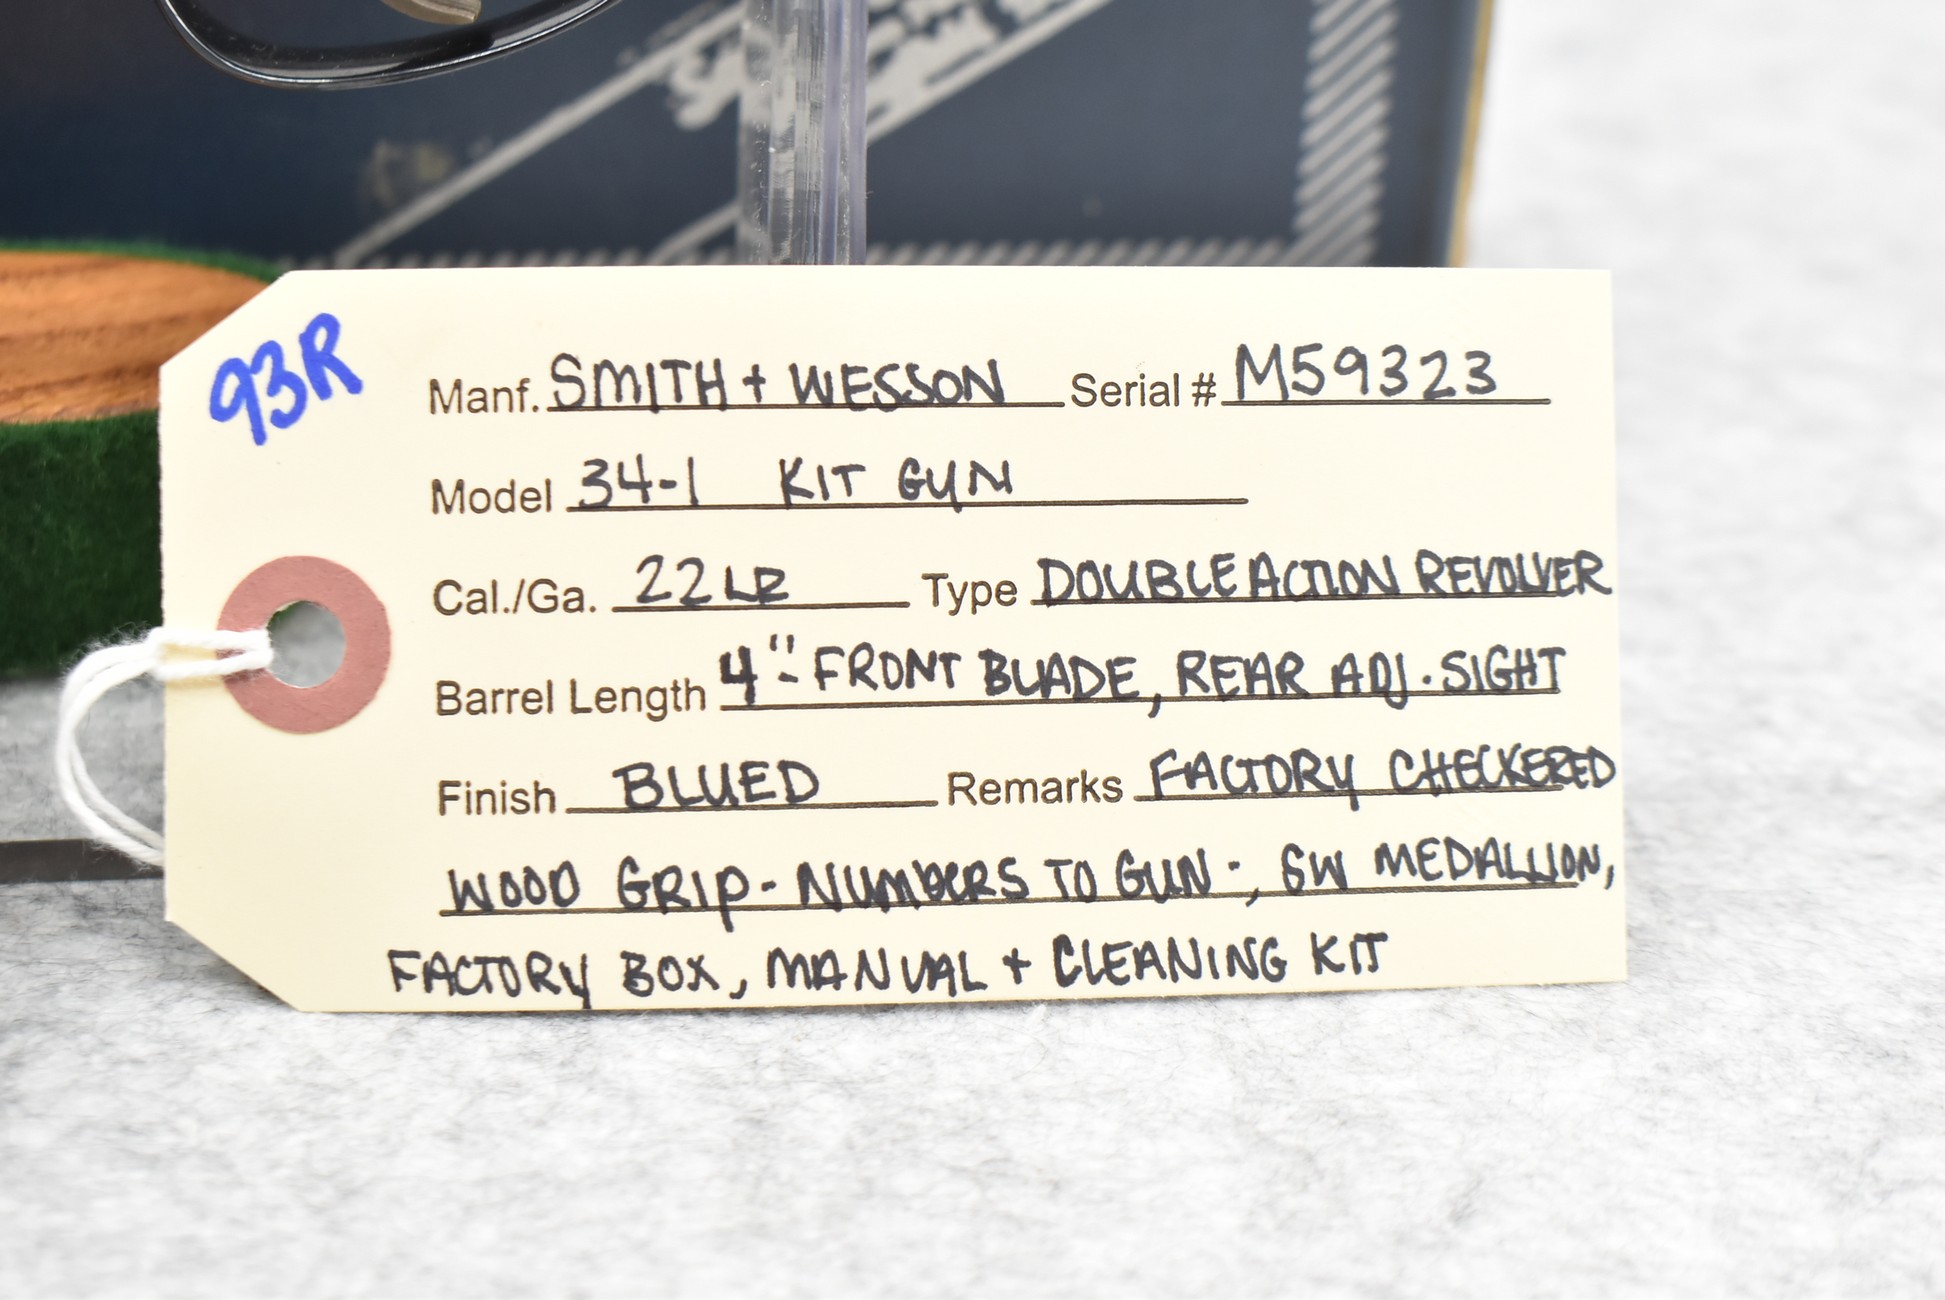 93R
Manf. SMITH + WESSON Serial # M59323
Model 34-1 KIT GUN
Cal./Ga. 22LR Type DOUBLE ACTION REVOLVER
Barrel Length 4" - FRONT BLADE, REAR ADJ. SIGHT
Finish BLUED Remarks FACTORY CHECKERED
WOOD GRIP - NUMBERS TO GUN -, SW MEDALLION,
FACTORY BOX, MANUAL + CLEANING KIT